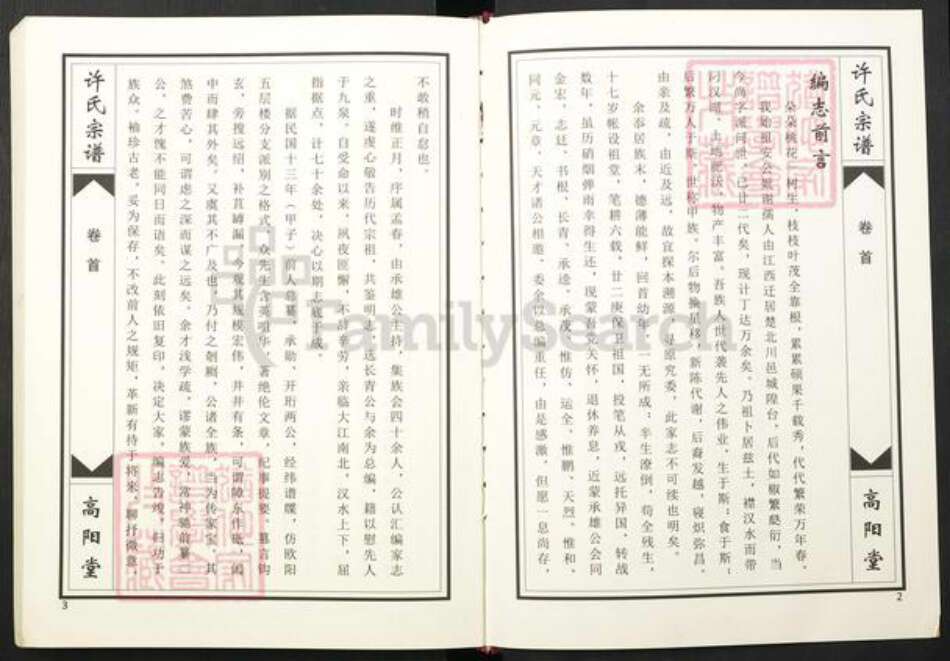 许氏宗谱
卷首
高阳堂
2
编志前言
朵朵桃花一树生，枝枝叶茂全靠根，累累硕果千载秀，代代繁荣万年春。
我始祖安公妣谢孺人由江西迁居楚北川邑城隍台，后代如椒繁瓞衍，当
今尚字派问世，已廿二代矣，现计丁达万余矣。乃祖卜居兹土，襟汉水而带
汈汉湖，土地肥沃，物产丰富。吾族人世代袭先人之伟业，生于斯；食于斯；
后繁万人于斯，世称甲族。尔后物换星移，新陈代谢，后裔发越，寝炽弥昌。
由亲及疏，由近及远，故宜探本溯源，寻原究委，此家志不可续也明矣。
余忝居族末，德薄能鲜，回首幼年，一无所成；半生潦倒，苟全残生，
十七岁帐设祖堂，笔耕六载，廿二庚保卫祖国，投笔从戎，远托异国，转战
数年，虽历硝烟弹雨幸得生还，现蒙吾党关怀，退休养息，近蒙承雄公会同
金宏、志廷、书根、长青、承逵、承茂、惟仿、运全、惟鹏、天烈、惟和、
同元、元章、天才诸公相邀，委余以总编重任，由是感激，但愿一息尚存，
不敢稍自怠也。
时维正月，序属孟春，由承雄公主持，集族会四十余人，公认汇编家志
之重，遂虔心敬告历代宗祖，共鉴明志，选长青公与余为总编，籍以慰先人
于九泉，自受命以来，夙夜匪懈，不辞辛劳，亲临大江南北，汉水上下，屈
指据点，计七十余处，决心以期志底于成。
据民国十三年（甲子）前人总纂，承勋、开珩两公，经纬谱牒，仿欧阳
五层楼分支派别之格式，众先生含英咀华，著绝伦文章，纪事提要，纂言钩
玄，旁搜远绍，补苴罅漏，今观其规模宏伟，井井有条，可谓障东作砥，闳
中而肆其外矣。又虞其不广及也，乃付之剞劂，公诸全族，当为传家宝，其
煞费苦心，可谓虑之深而谋之远矣。余才浅学疏，谬蒙族爱，常神驰前纂二
公，之才愧不能同日而语矣。此刻依旧复印，决定大家，编志告竣，归功于
族众。袖珍古老，妥为保存，不改前人之规矩，革新有待于将来，聊抒微意。
许氏宗谱
卷首
高阳堂
3
FamilySearch